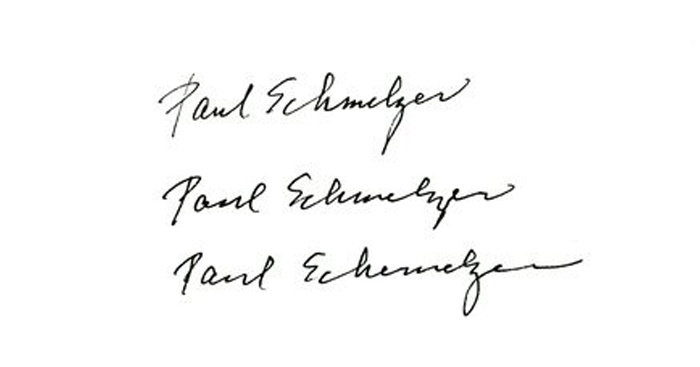 Paul Schmelzer
Paul Schmelzer
Paul Schemelzer